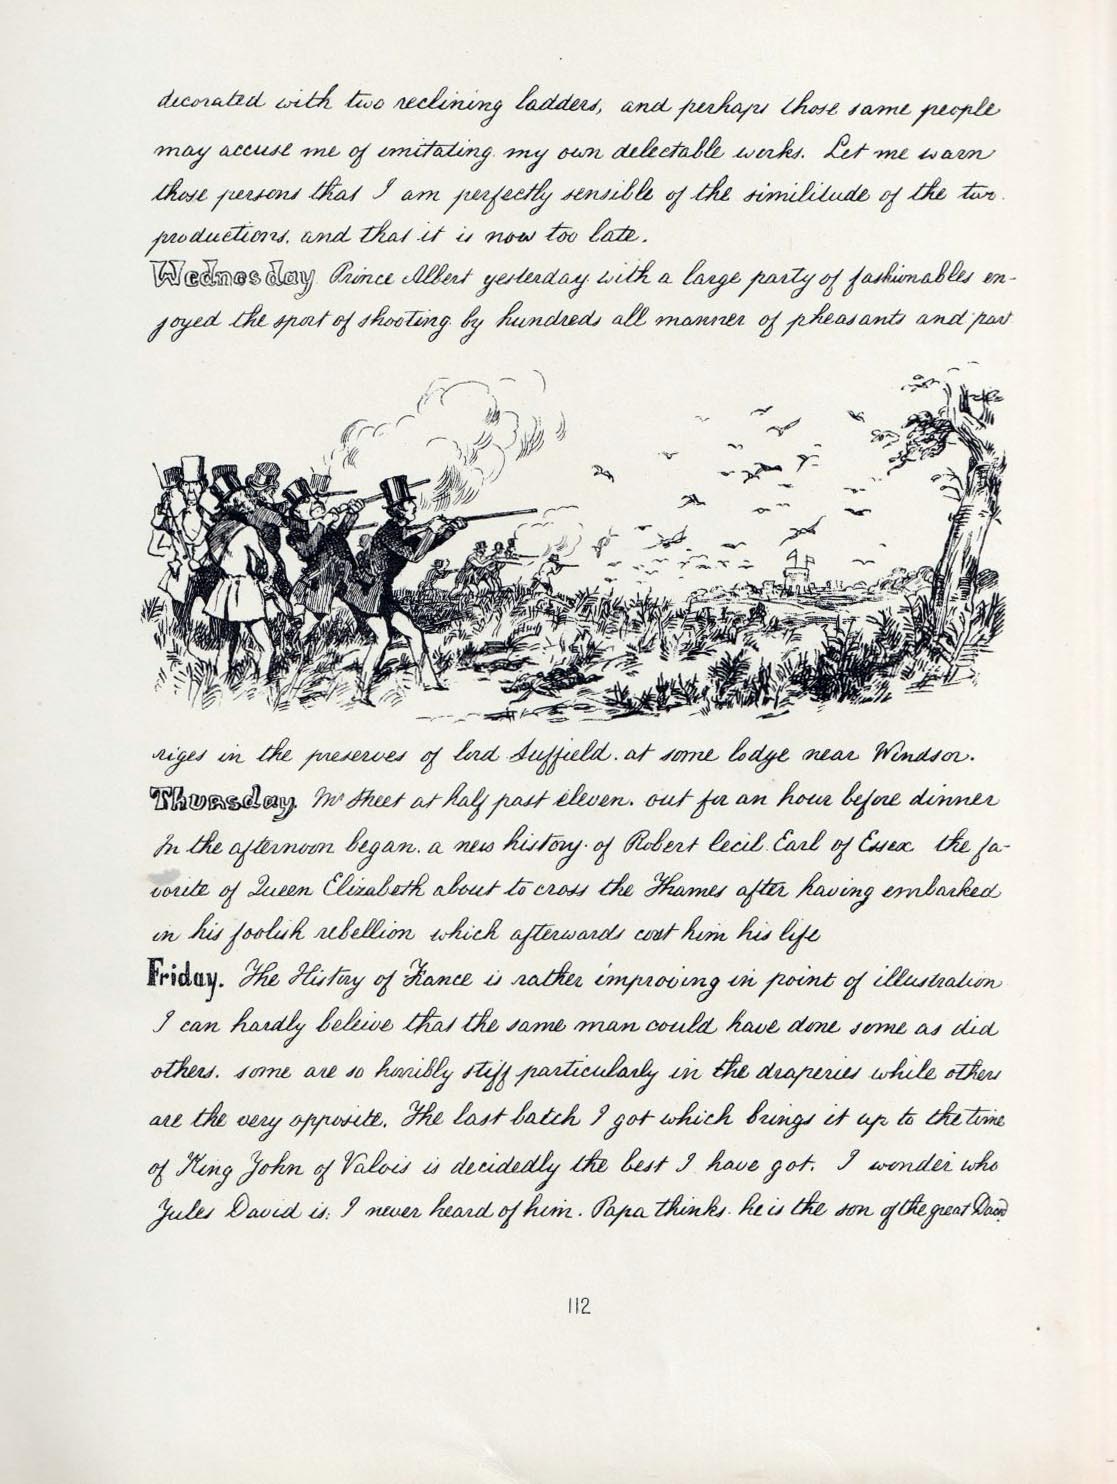 decorated with two reclining ladders, and perhaps those same people
may accuse me of imitating my own delectable works. Let me warn
those persons that I am perfectly sensible of the similitude of the two
productions, and that it is now too late.
Wednesday Prince Albert yesterday with a large party of fashionables en-
joyed the sport of shooting by hundreds all manner of pheasants and part
riges in the preserves of lord Suffield. at some lodge near Windsor.
Thursday. Mr Street at half past eleven. out for an hour before dinner
In the afternoon began. a new history of Robert Cecil Earl of Essex the fa-
vorite of Queen Elizabeth about to cross the Thames after having embarked
in his foolish rebellion which afterwards cost him his life
Friday. The History of France is rather improving in point of illustration
I can hardly beleive that the same man could have done some as did
others. some are so horribly stiff particularly in the draperies while others
are the very opposite. The last batch I got which brings it up to the time
of King John of Valois is decidedly the best I have got. I wonder who
Jules David is: I never heard of him. Papa thinks he is the son of the great David
112